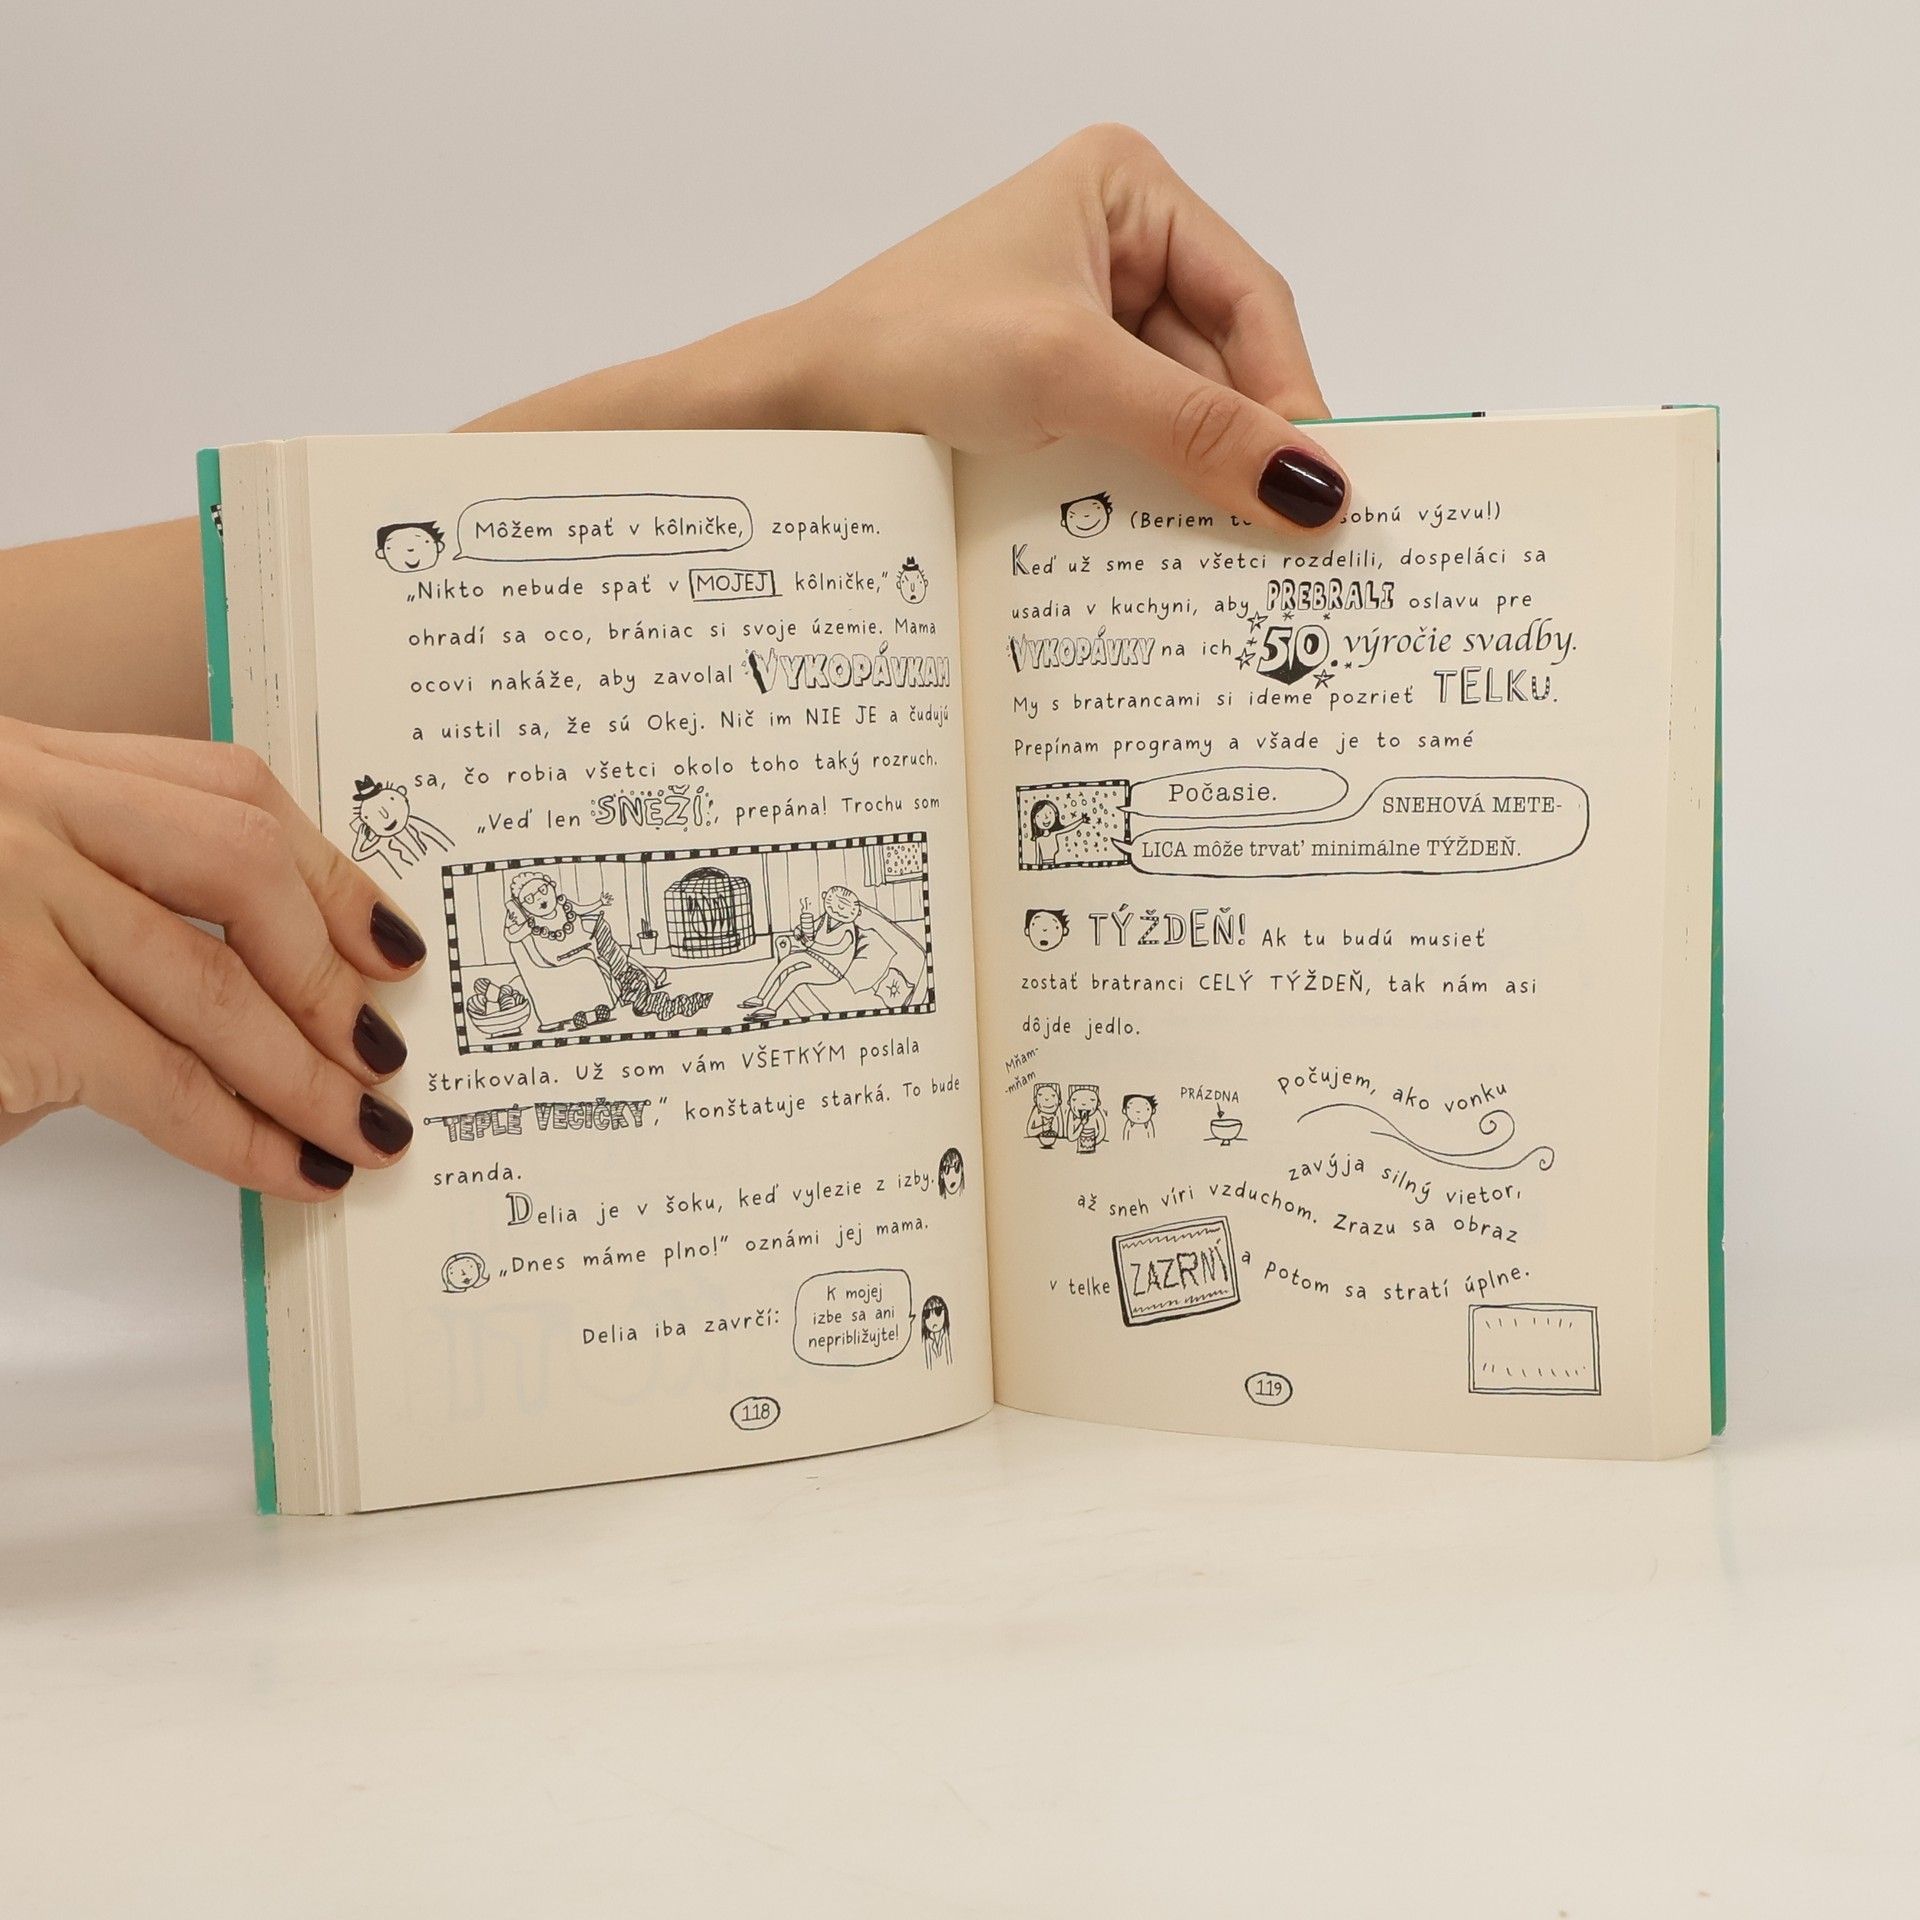 Môžem spať v kôlničke, zopakujem.
„Nikto nebude spať v MOJEJ kôlničke,“
ohradí sa oco, brániac si svoje územie. Mama
ocovi nakáže, aby zavolal VYKOPÁVKAM
a uistil sa, že sú Okej. Nič im NIE JE a čudujú
sa, čo robia všetci okolo toho taký rozruch.
„Veď len SNEŽÍ, prepána! Trochu som
štrikovala. Už som vám VŠETKÝM poslala
TEPLÉ VECIČKY,“ konštatuje starká. To bude
sranda.
Delia je v šoku, keď vylezie z izby.
„Dnes máme plno!“ oznámi jej mama.
Delia iba zavrčí:
K mojej
izbe sa ani
nepribližujte!
118
(Beriem výzvu!)
Keď už sme sa všetci rozdelili, dospeláci sa
usadia v kuchyni, aby PREBRALI oslavu pre
VYKOPÁVKY na ich 50. výročie svadby.
My s bratrancami si ideme pozrieť TELKU.
Prepínam programy a všade je to samé
Počasie.
SNEHOVÁ METE-
LICA môže trvať minimálne TÝŽDEŇ.
TÝŽDEŇ! Ak tu budú musieť
zostať bratranci CELÝ TÝŽDEŇ, tak nám asi
dôjde jedlo.
Mňam-
-mňam
PRÁZDNA
Počujem, ako vonku
zavýja silný vietor,
až sneh víri vzduchom. Zrazu sa obraz
v telke ZAZRNÍ a potom sa stratí úplne.
119